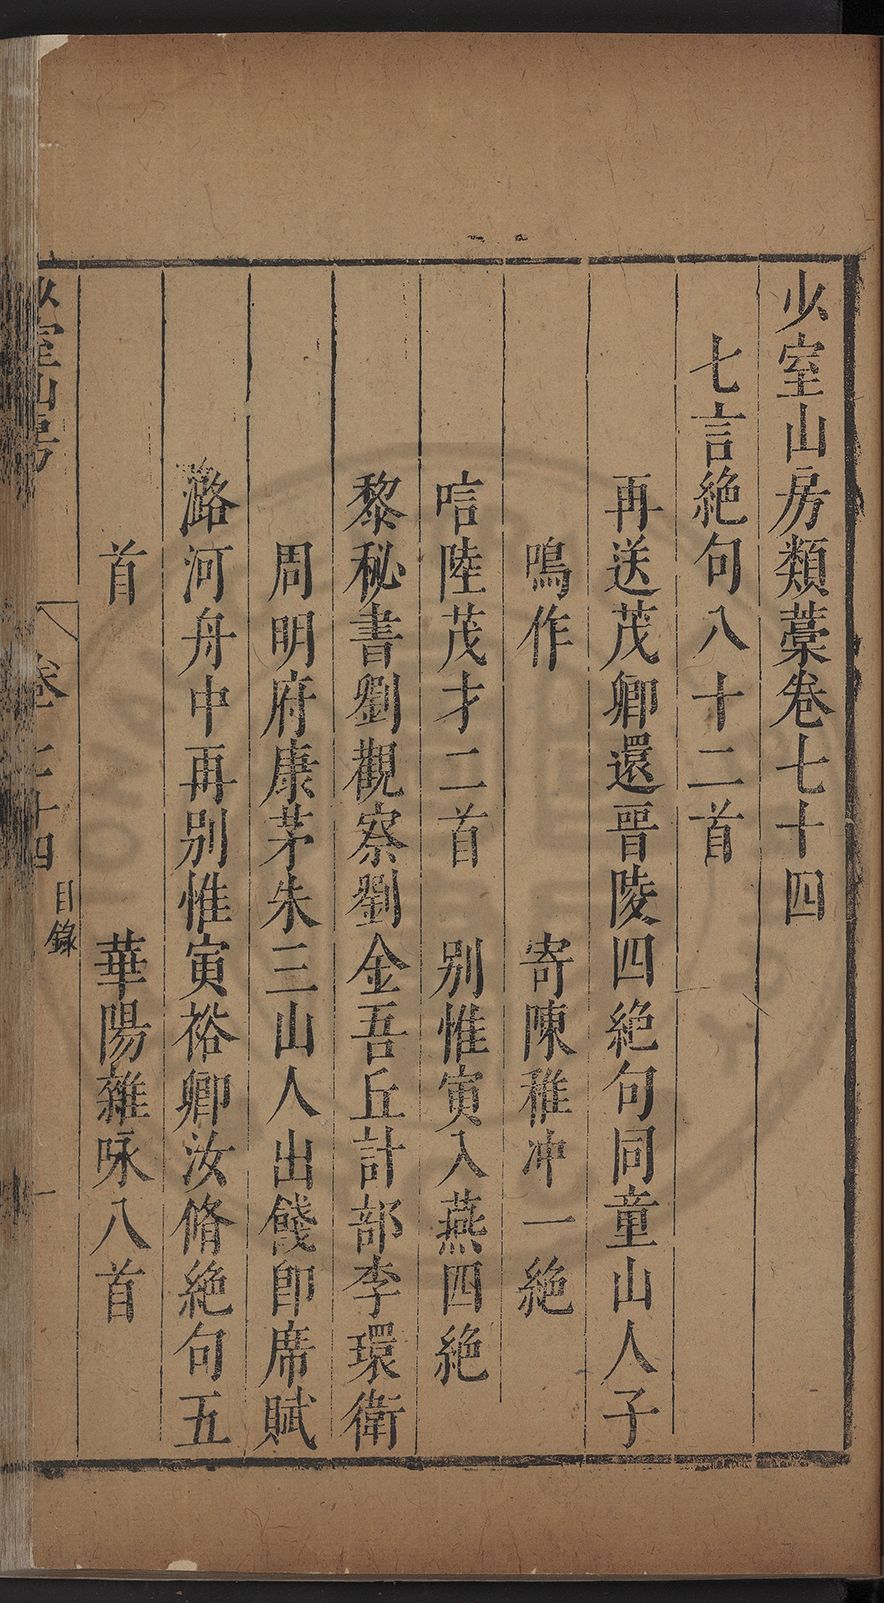 少室山房類藁卷七十四
七言絶句八十二首
再送茂卿還晉陵四絶句同童山人子
鳴作　寄陳稚冲一絶
唁陸茂才二首　别惟寅入燕四絶
黎秘書劉觀察劉金吾丘計部李環衛
周明府康茅朱三山人出餞卽席賦
潞河舟中再别惟寅裕卿汝脩絶句五
首　華陽雜咏八首
少室山房　卷七十四　目錄　一